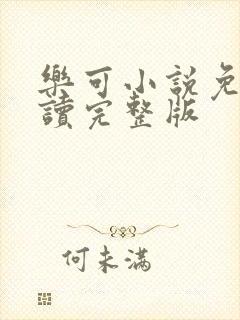 樂可小說免
讀完整版
何未滿